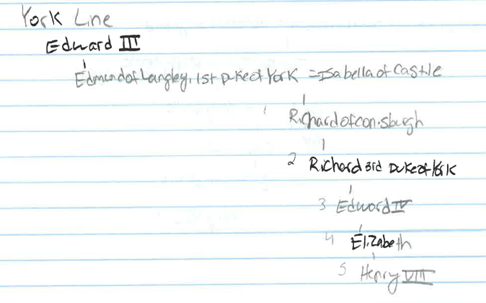 York Line
Edward III
Edmund of Langley, 1st Duke of York = Isabella of Castle
1 Richard of Conisburgh
2 Richard 3rd Duke of York
3 Edward IV
4 Elizabeth
5 Henry VIII